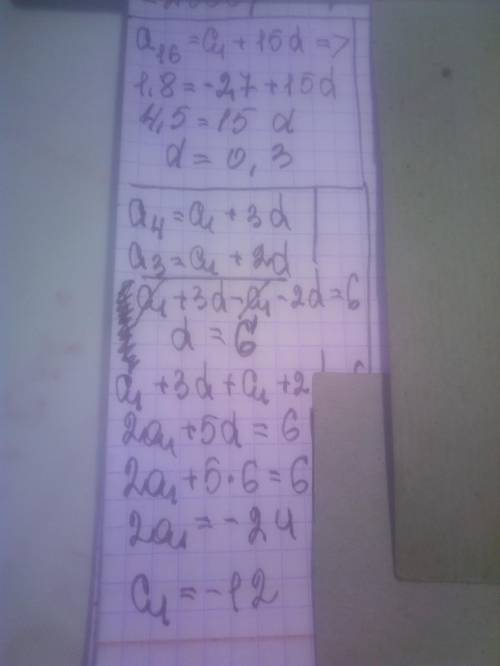 a₁₆ = a₁ + 15d =>
1,8 = -2,7 + 15d
4,5 = 15 d
d = 0,3
a₄ = a₁ + 3d
a₃ = a₁ + 2d
a₁ + 3d - a₁ - 2d = 6
d = 6
a₁ + 3d + a₁ + 2
2a₁ + 5d = 6
2a₁ + 5·6 = 6
2a₁ = -24
a₁ = -12